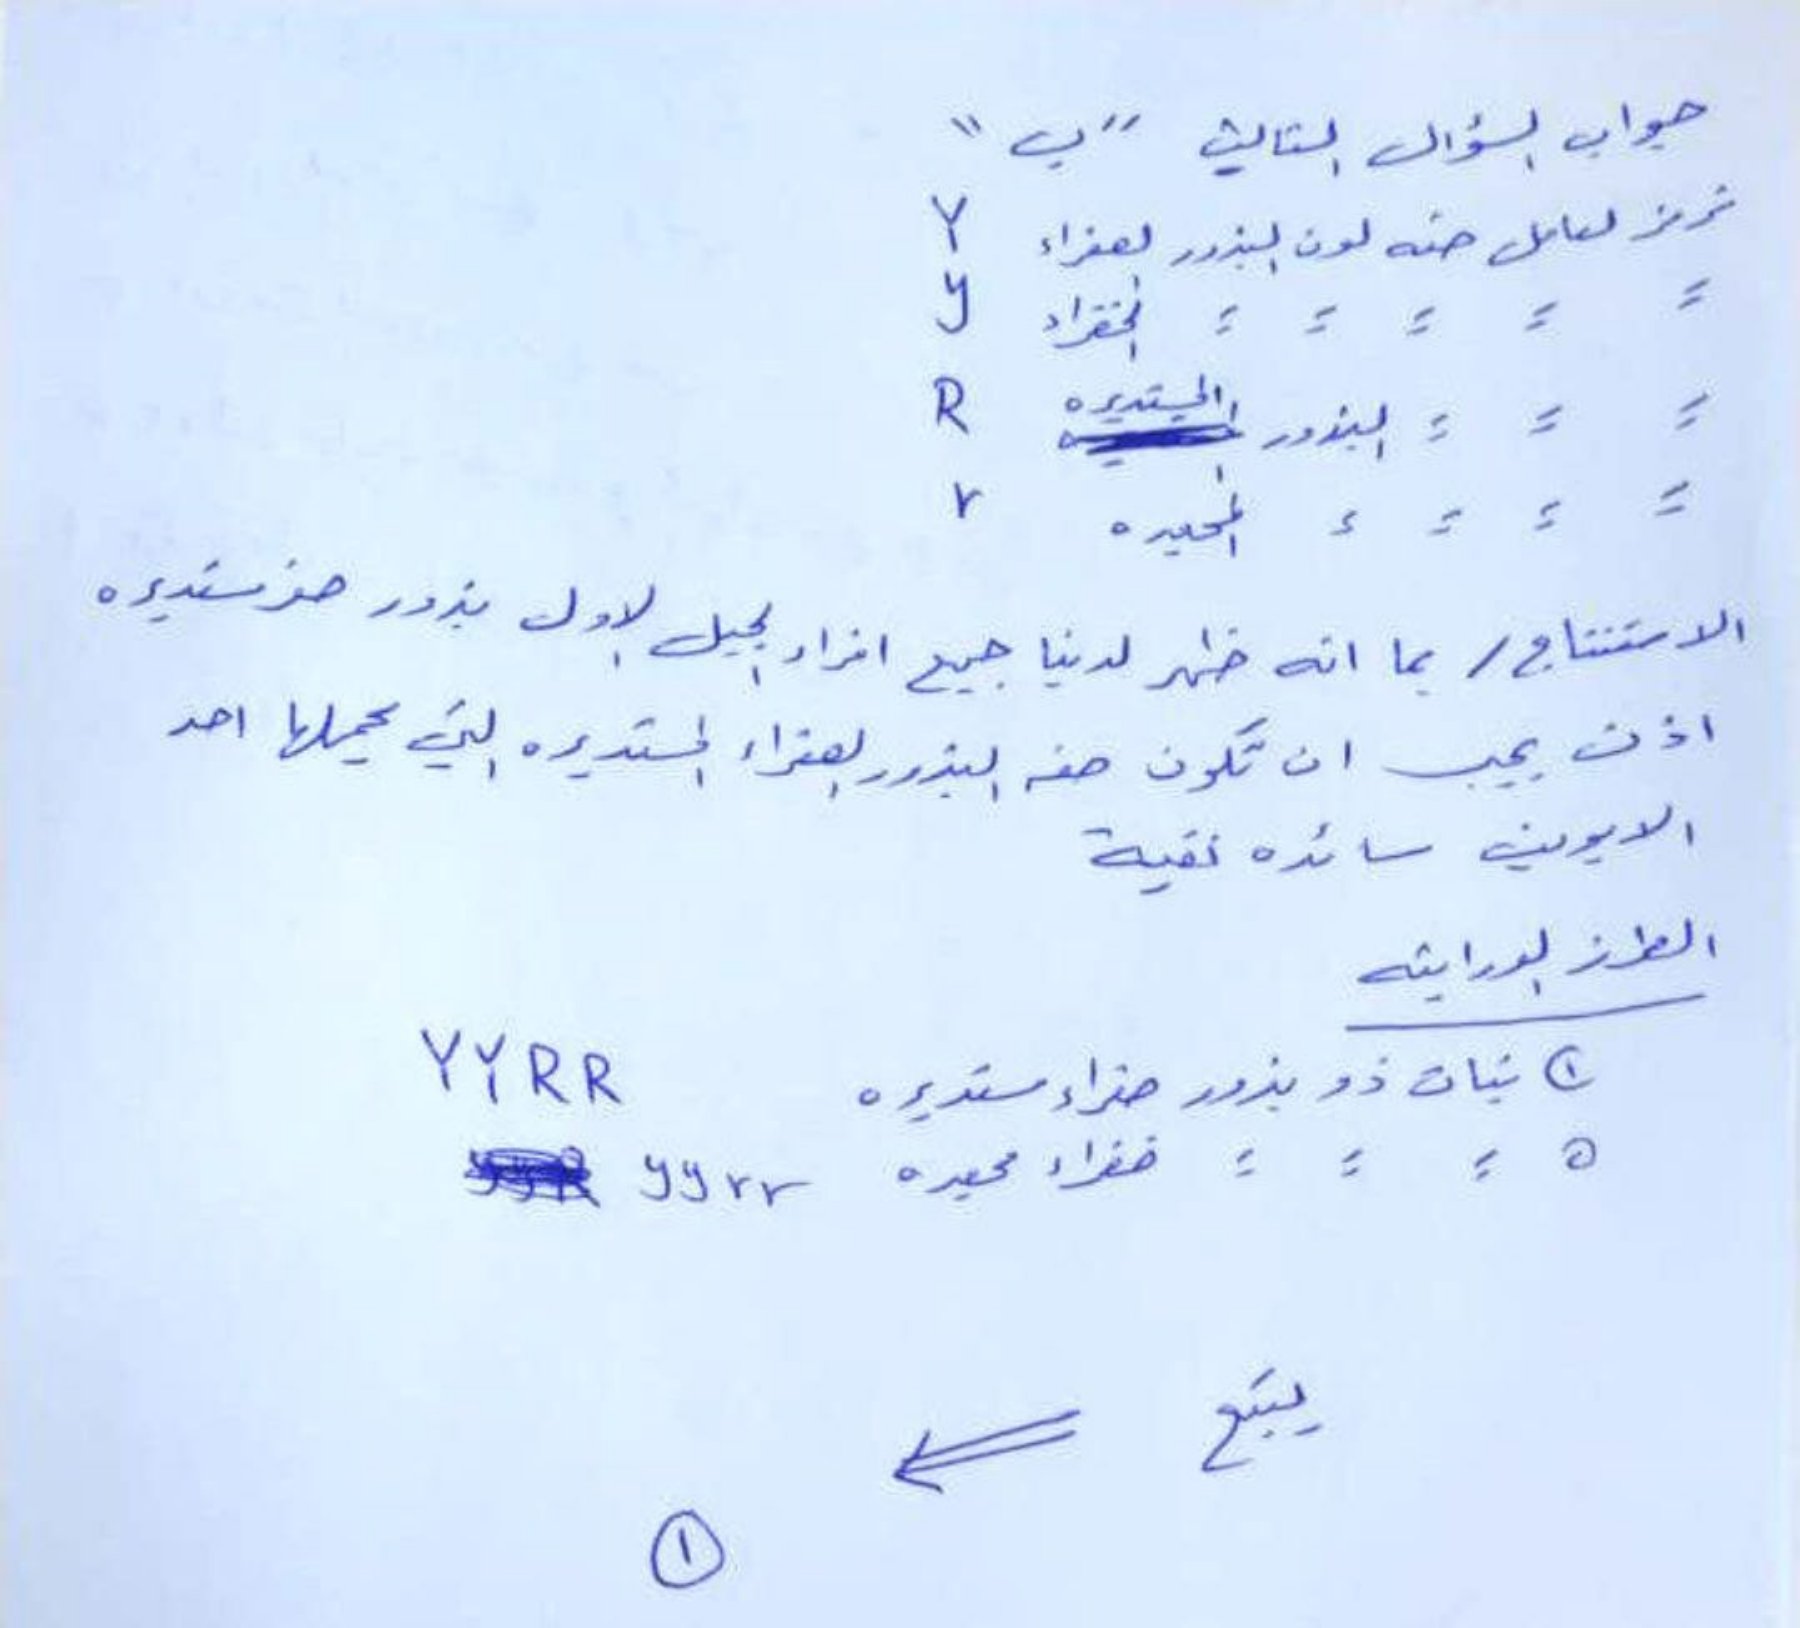 جواب السؤال الثالث "ب"
نرمز لعامل صفه لون البذور الصفراء Y
〃 〃 〃 〃 〃 الخضراء y
〃 〃 〃 البذور المستديره R
〃 〃 〃 〃 المجعده r
الاستنتاج / بما انه ظهر لدينا جميع افراد الجيل الاول بذور صفر مستديره
اذن يجب ان تكون صفه البذور الصفراء المستديره التي يحملها احد
الابوين سائده نقية
الطرز الوراثيه
① نبات ذو بذور صفراء مستديره YYRR
② 〃 〃 〃 خضراء مجعده yyrr
يتبع ⇐
①